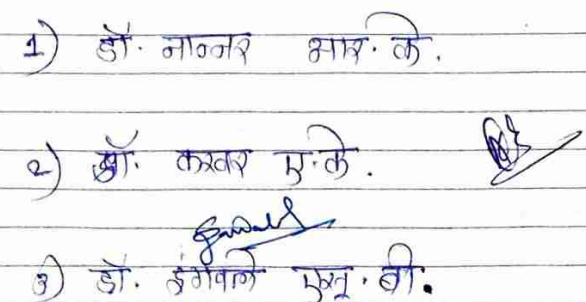 1) डॉ. नान्नर आर. के.
2) डॉ. करवर ए. के.
3) डॉ. इंगवले एस. बी.